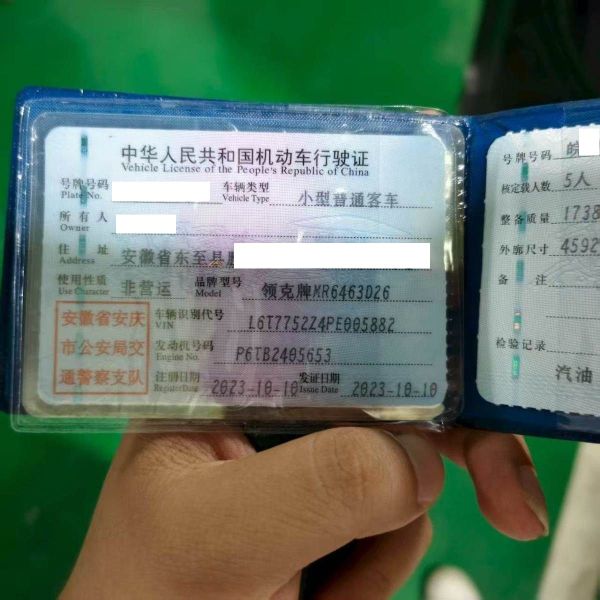 中华人民共和国机动车行驶证
Vehicle License of the People's Republic of China
号牌号码
Plate No.
车辆类型
Vehicle Type
小型普通客车
所有人
Owner
住址
Address
安徽省东至县
使用性质
Use Character
非营运
品牌型号
Model
领克牌MR6463D26
安徽省安庆
市公安局交
通警察支队
车辆识别代号
VIN
L6T7752Z4PE005882
发动机号码
Engine No.
P6TB2405653
注册日期
Register Date
2023-10-10
发证日期
Issue Date
2023-10-10
号牌号码 皖
核定载人数 5人
整备质量 1738
外廓尺寸 4592
备注
检验记录
汽油